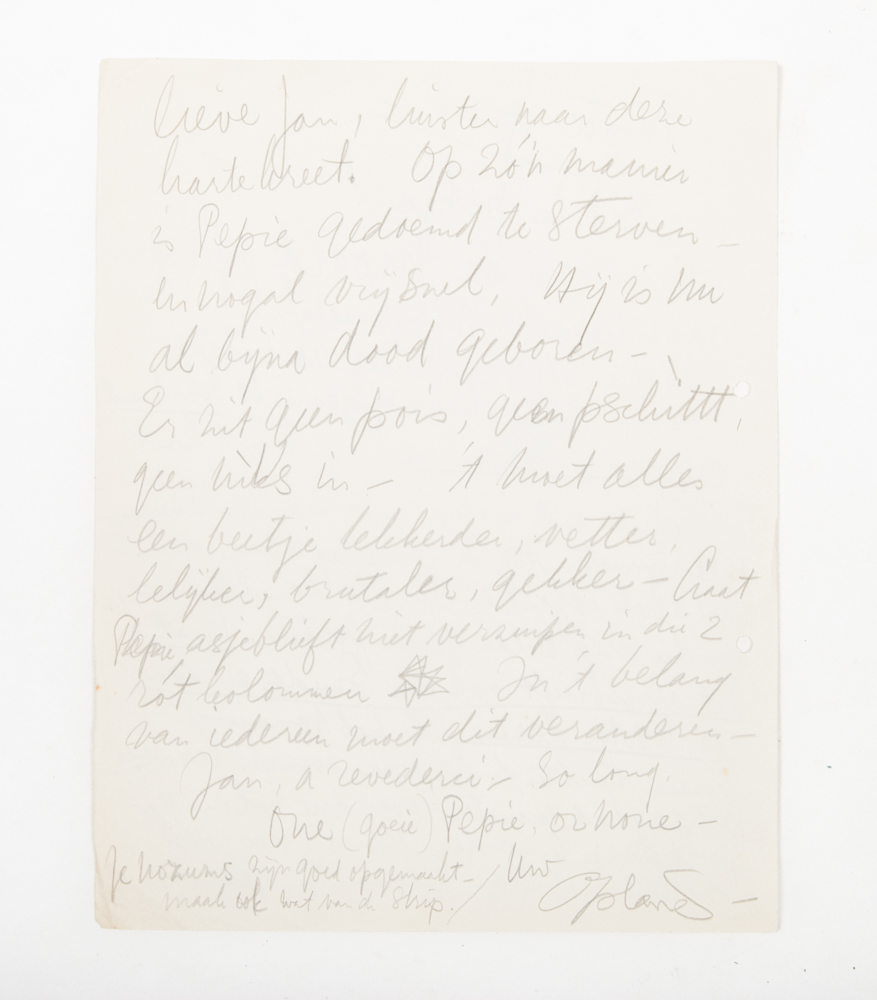 lieve Jan, luister naar deze
hartekreet. Op zó'n manier
is Pepie gedoemd te sterven –
en nogal vrij snel, Hij is nu
al bijna dood geboren –
Er zit geen pois, geen pschittt,
geen niks in – 't moet alles
een beetje lekkerder, vetter,
lelijker, brutaler, gekker – Laat
Pepie asjeblieft niet verzuipen in die 2
rót kolommen In 't belang
van iedereen moet dit veranderen –
Jan, a revederci – So long.
One (goeie) Pepie. or none –
Je nozums zijn goed opgemaakt – / Uw
maak ook wat van de strip. /
Oplanć –